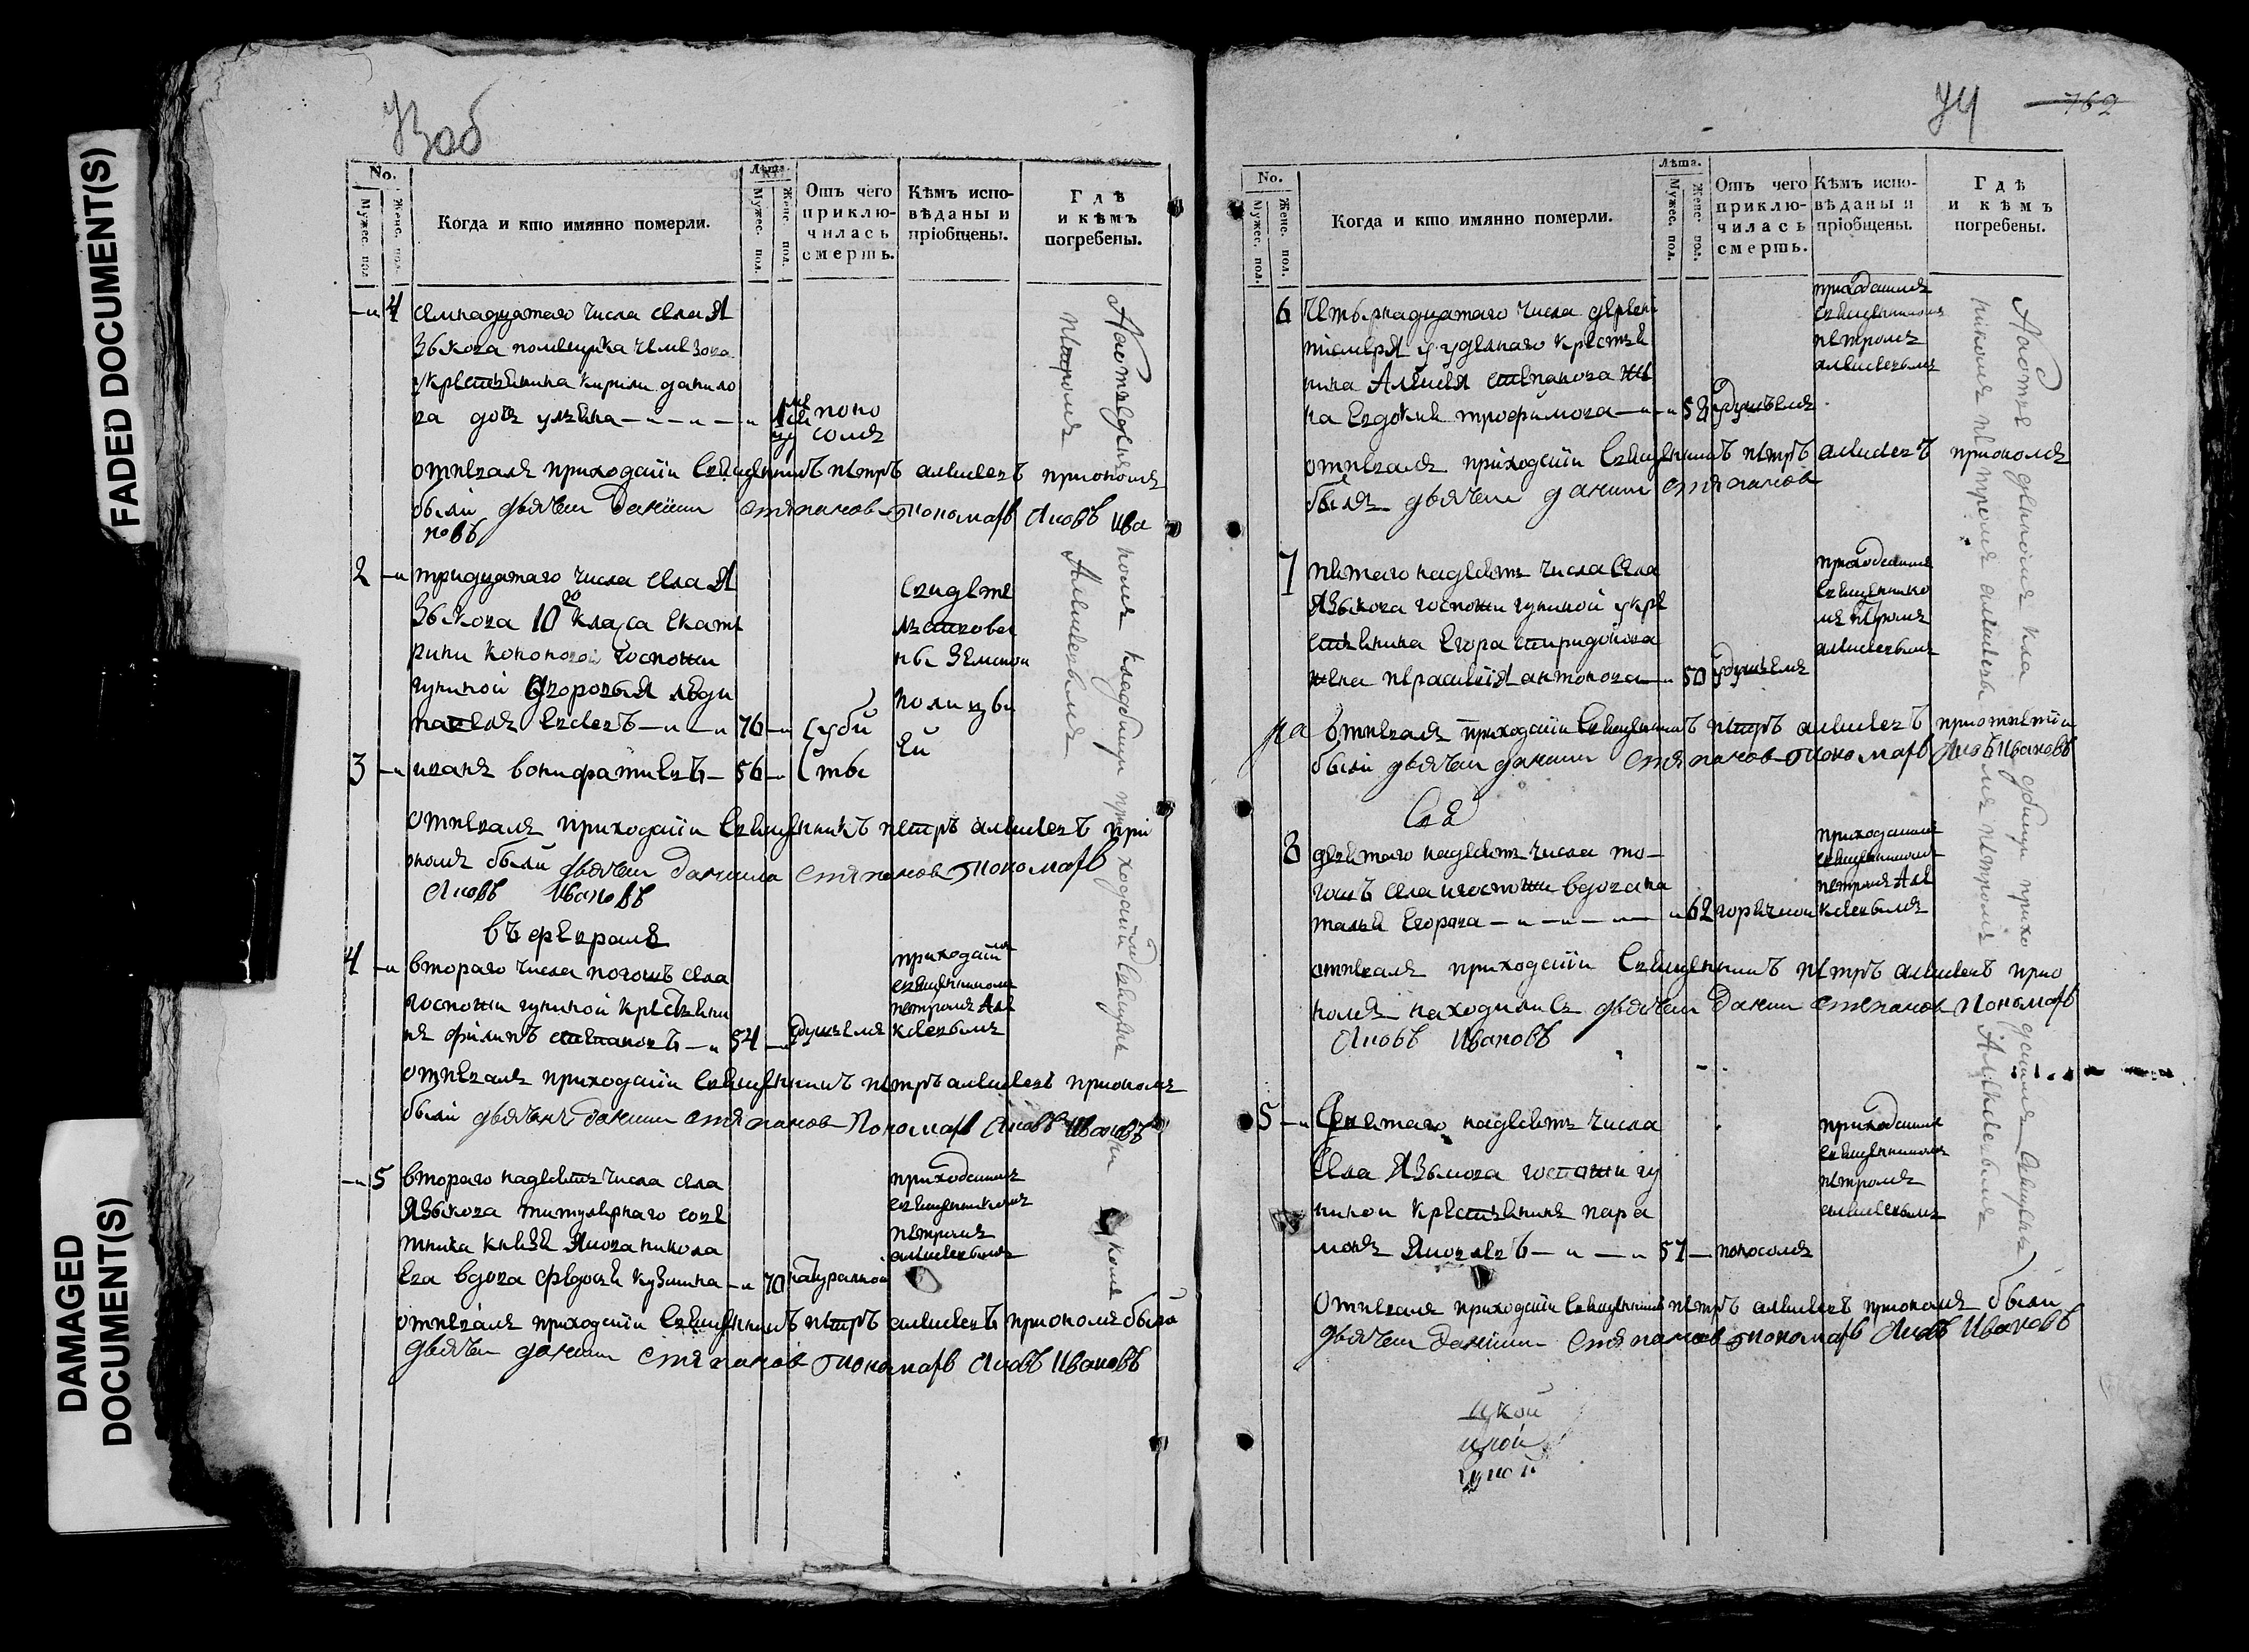 FADED DOCUMENT(S)
DAMAGED
DOCUMENT(S)
73об
No.
Мужес. пол.
Женс. пол.
Когда и кто имянно померли.
Лѣта.
Мужес. пол.
Женс. пол.
Отъ чего
приклю-
чилась
смерть.
Кѣмъ испо-
вѣданы и
пріобщены.
Гдѣ
и кѣмъ
погребены.
4 семнадцатаго числа села Я
зыкова помещика
укрестьянина кирилы данило
ва дочь ульяна
поно
сомъ
отпевалъ приходскій священникъ петръ алексеевъ приономъ
были дьячекъ данилъ степановъ пономарь Яковъ Ива
новъ
2 тридцатаго числа села Я
зыкова 10го класа екате
рины госпожи
гуниной дворовыя люди
евсеевъ 76
свидете
льствова
ны земскои
полицы
ей
3 иванъ вонифатиевъ 56
отпевалъ приходскій священникъ петръ алексеевъ при
ономъ были дьячекъ данила степановъ пономарь
Яковъ Ивановъ
въ февралѣ
4 втораго числа тогожъ села
госпожи гуниной крестьяни
нъ филипъ степановъ 54 удушьемъ
приходскім
священникомъ
петромъ Але
ксеевымъ
отпевалъ приходскій священникъ петръ алексеевъ приономъ
были дьячекъ данилъ степановъ Пономарь Яковъ Ивановъ
5 втораго надесеть числа села
Языкова титулярнаго сове
тника князя Якова никола
ева вдова федосья кузмина 70 натуралной
приходскимъ
священникомъ
петромъ
алексеевымъ
отпевалъ приходскій священникъ петръ алексеевъ приономъ были
дьячекъ данилъ степановъ пономарь Яковъ Ивановъ
74
762
No.
Мужес. пол.
Женс. пол.
Когда и кто имянно померли.
Лѣта.
Мужес. пол.
Женс. пол.
Отъ чего
приклю-
чилась
смерть.
Кѣмъ испо-
вѣданы и
пріобщены.
Гдѣ
и кѣмъ
погребены.
6 четырнадцатаго числа деревни
уделнаго крестья
нина Алексея степанова же
на евдокия трофимова 52 удушьемъ
приходскимъ
священникомъ
петромъ
алексеевымъ
отпевалъ приходскій священникъ петръ алексеевъ приономъ
былъ дьячекъ данилъ степановъ
7 пятаго надесеть числа села
Языкова госпожи гуниной укре
стьянина Егора спиридонова
жена перасковія антонова 50 удушьемъ
приходскимъ
священнико
мъ петромъ
алексеевымъ
отпевалъ приходскій священникъ петръ алексеевъ приотпетіи
были дьячекъ данилъ степановъ пономарь Яковъ Ивановъ
8 девятаго надесеть числа то-
гожъ села игоспожи вдова на
талья Егорова 62 горячкои
приходскимъ
священникомъ
петромъ Але
ксеевымъ
отпевалъ приходскій священникъ петръ алексеевъ прио
номъ находились дьячекъ данилъ степановъ Пономарь
Яковъ Ивановъ
5 девятаго надесеть числа
села Языкова госпожи гу
нинои крестьянинъ пара
монъ Яковлевъ 57 поносомъ
приходскимъ
священникомъ
петромъ
алексеевымъ
Отпевалъ приходскій священникъ петръ алексеевъ приономъ были
дьячекъ данилъ степановъ пономарь Яковъ Ивановъ